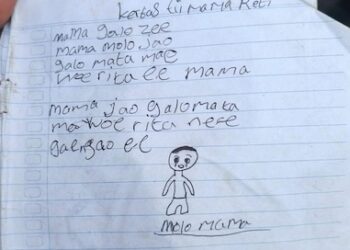 kertas ii mama Keti
mama galo zee
mama molo jao
galo mata mae
woe rita ee mama
mama jao galo mata
ma woe rita nere
gae gao ee
molo mama